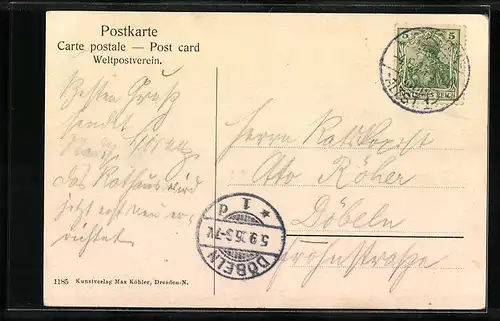 Postkarte
Carte postale — Post card
Weltpostverein.
5
Besten Gruß
sendet
das Rathaus wird
jetzt erst neu er-
richtet
Herrn
Otto Röher
Döbeln
* 1 d
5.9.15.5-7V.
DÖBELN
1185 Kunstverlag Max Köhler, Dresden-N.